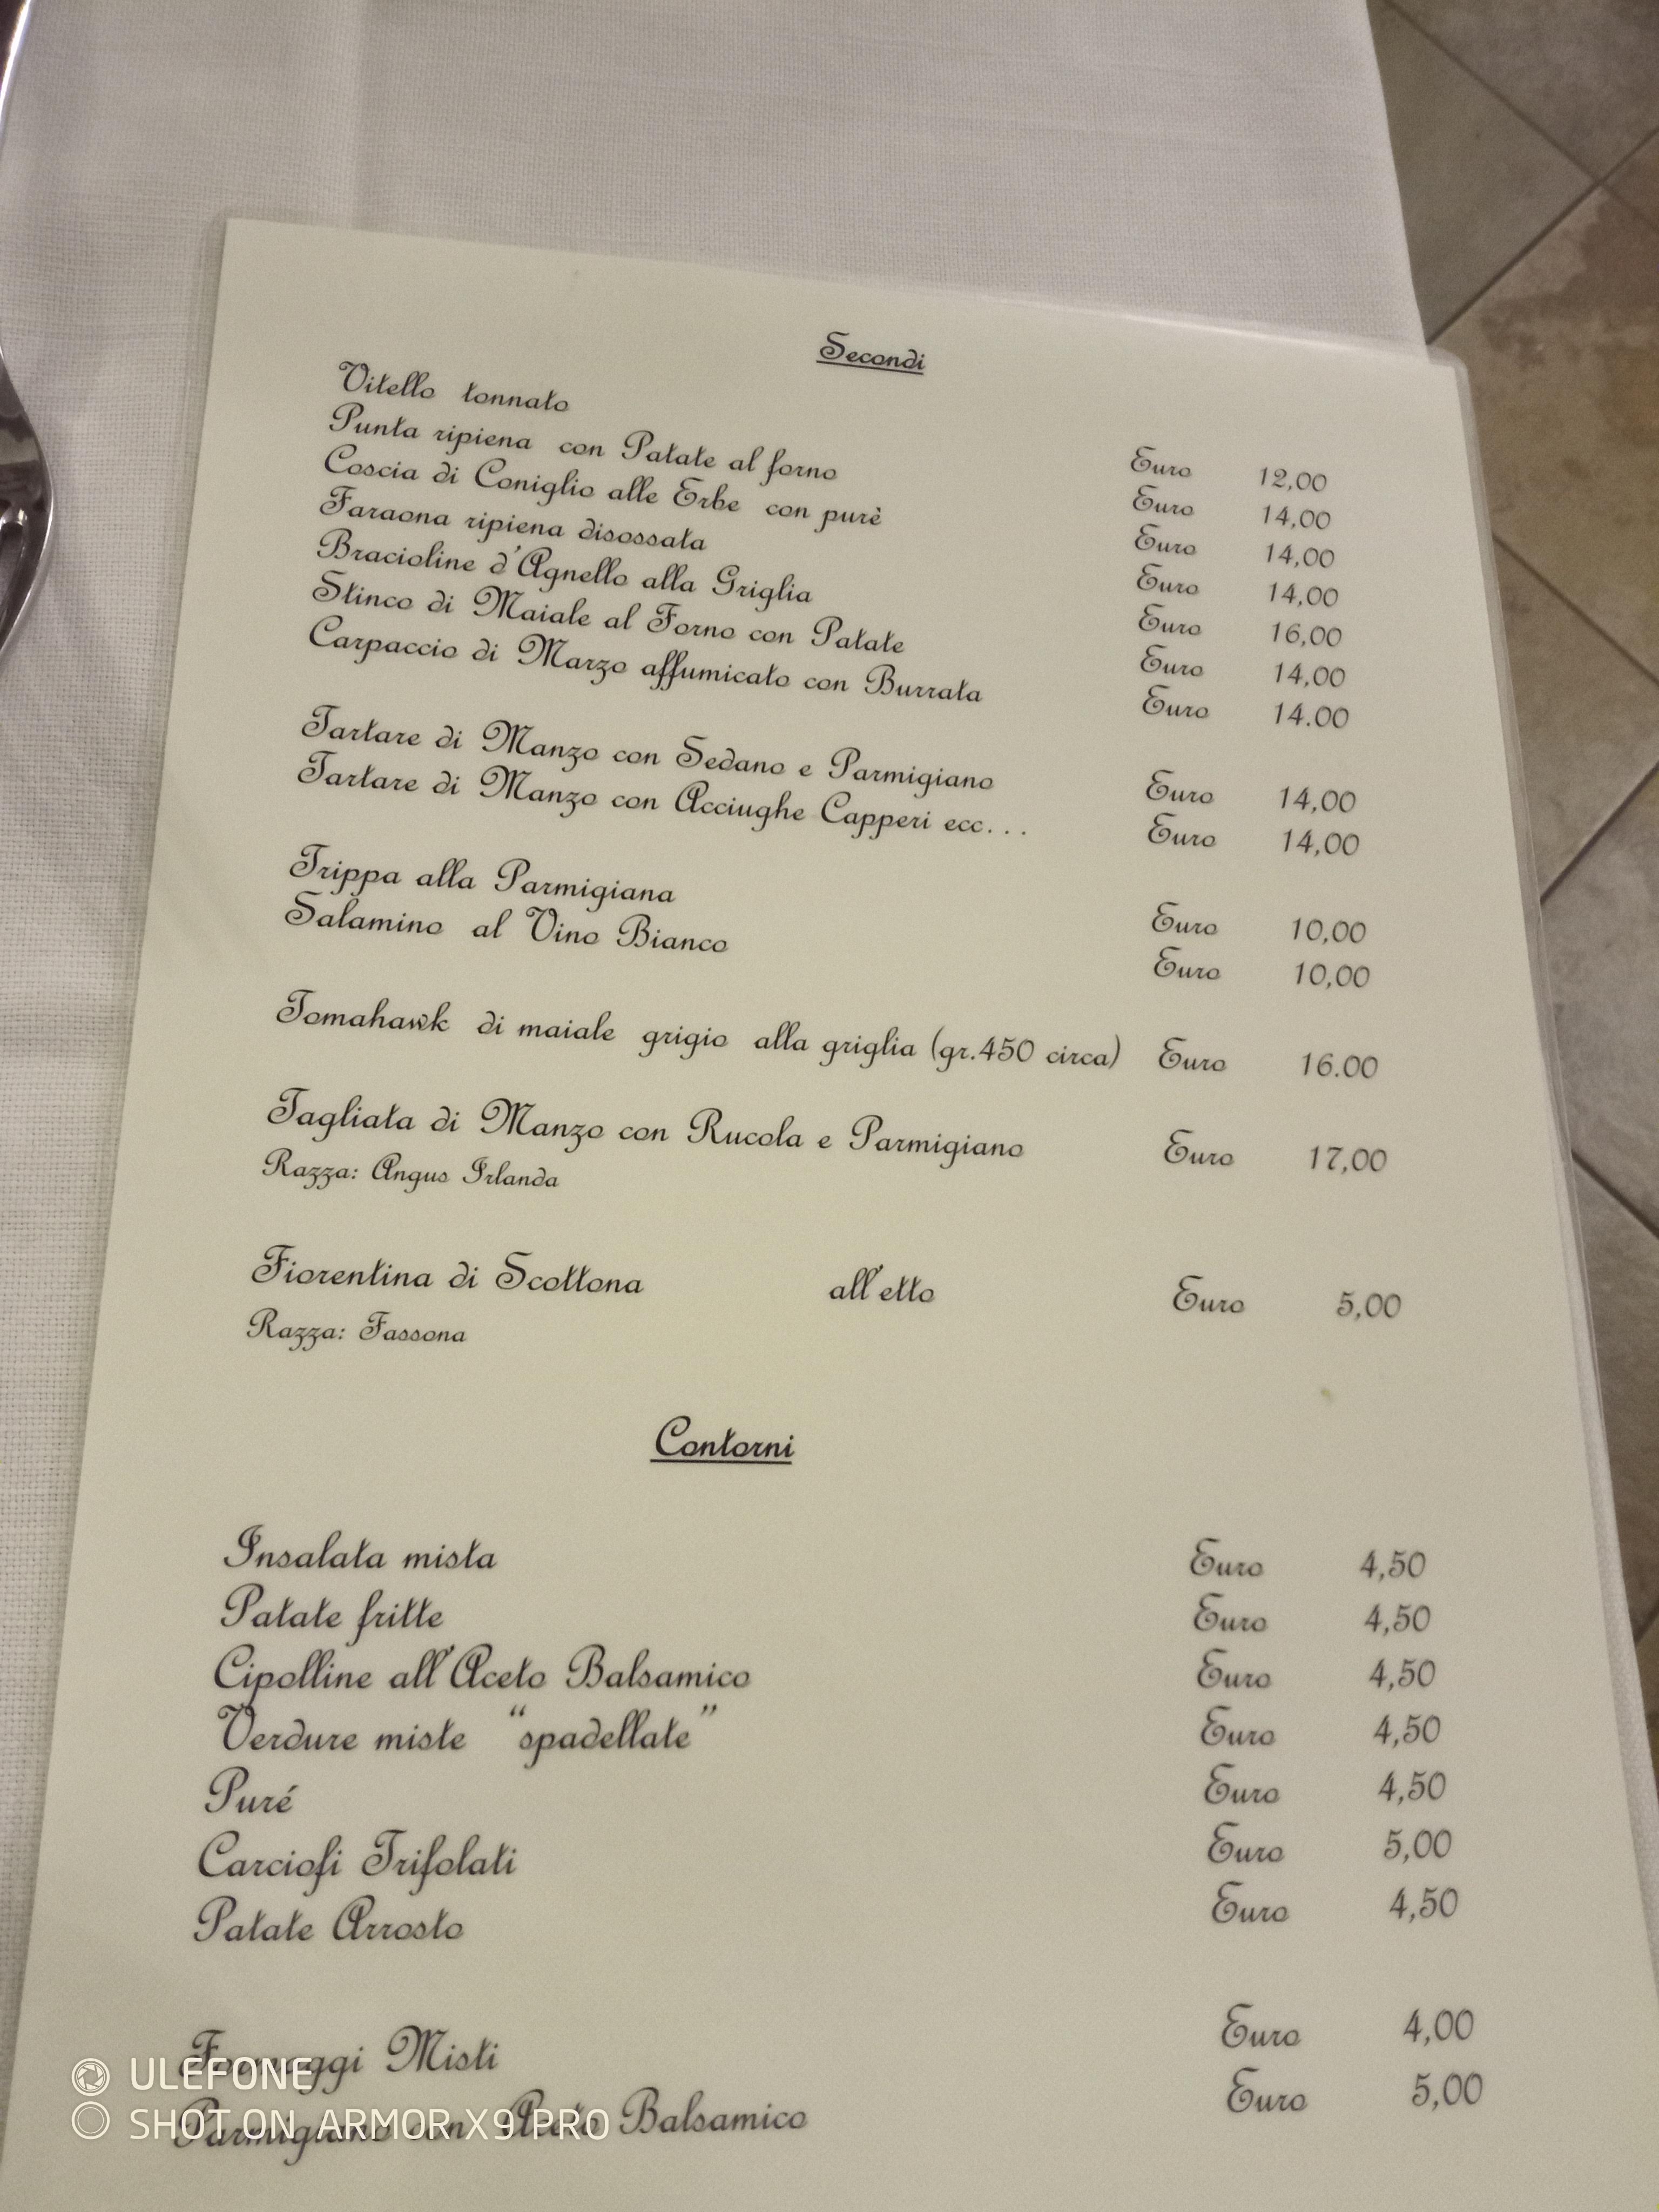 Secondi
Vitello tonnato Euro 12,00
Punta ripiena con Patate al forno Euro 14,00
Coscia di Coniglio alle Erbe con purè Euro 14,00
Faraona ripiena disossata Euro 14,00
Bracioline d'Agnello alla Griglia Euro 16,00
Stinco di Maiale al Forno con Patate Euro 14,00
Carpaccio di Marzo affumicato con Burrata Euro 14.00
Tartare di Manzo con Sedano e Parmigiano Euro 14,00
Tartare di Manzo con Acciughe Capperi ecc... Euro 14,00
Trippa alla Parmigiana Euro 10,00
Salamino al Vino Bianco Euro 10,00
Tomahawk di maiale grigio alla griglia (gr.450 circa) Euro 16.00
Tagliata di Manzo con Rucola e Parmigiano Euro 17,00
Razza: Angus Irlanda
Fiorentina di Scottona all'etto Euro 5,00
Razza: Fassona
Contorni
Insalata mista Euro 4,50
Patate fritte Euro 4,50
Cipolline all'Aceto Balsamico Euro 4,50
Verdure miste "spadellate" Euro 4,50
Puré Euro 4,50
Carciofi Trifolati Euro 5,00
Patate Arrosto Euro 4,50
Formaggi Misti Euro 4,00
Parmigiano con Aceto Balsamico Euro 5,00
ULEFONE
SHOT ON ARMOR X9 PRO